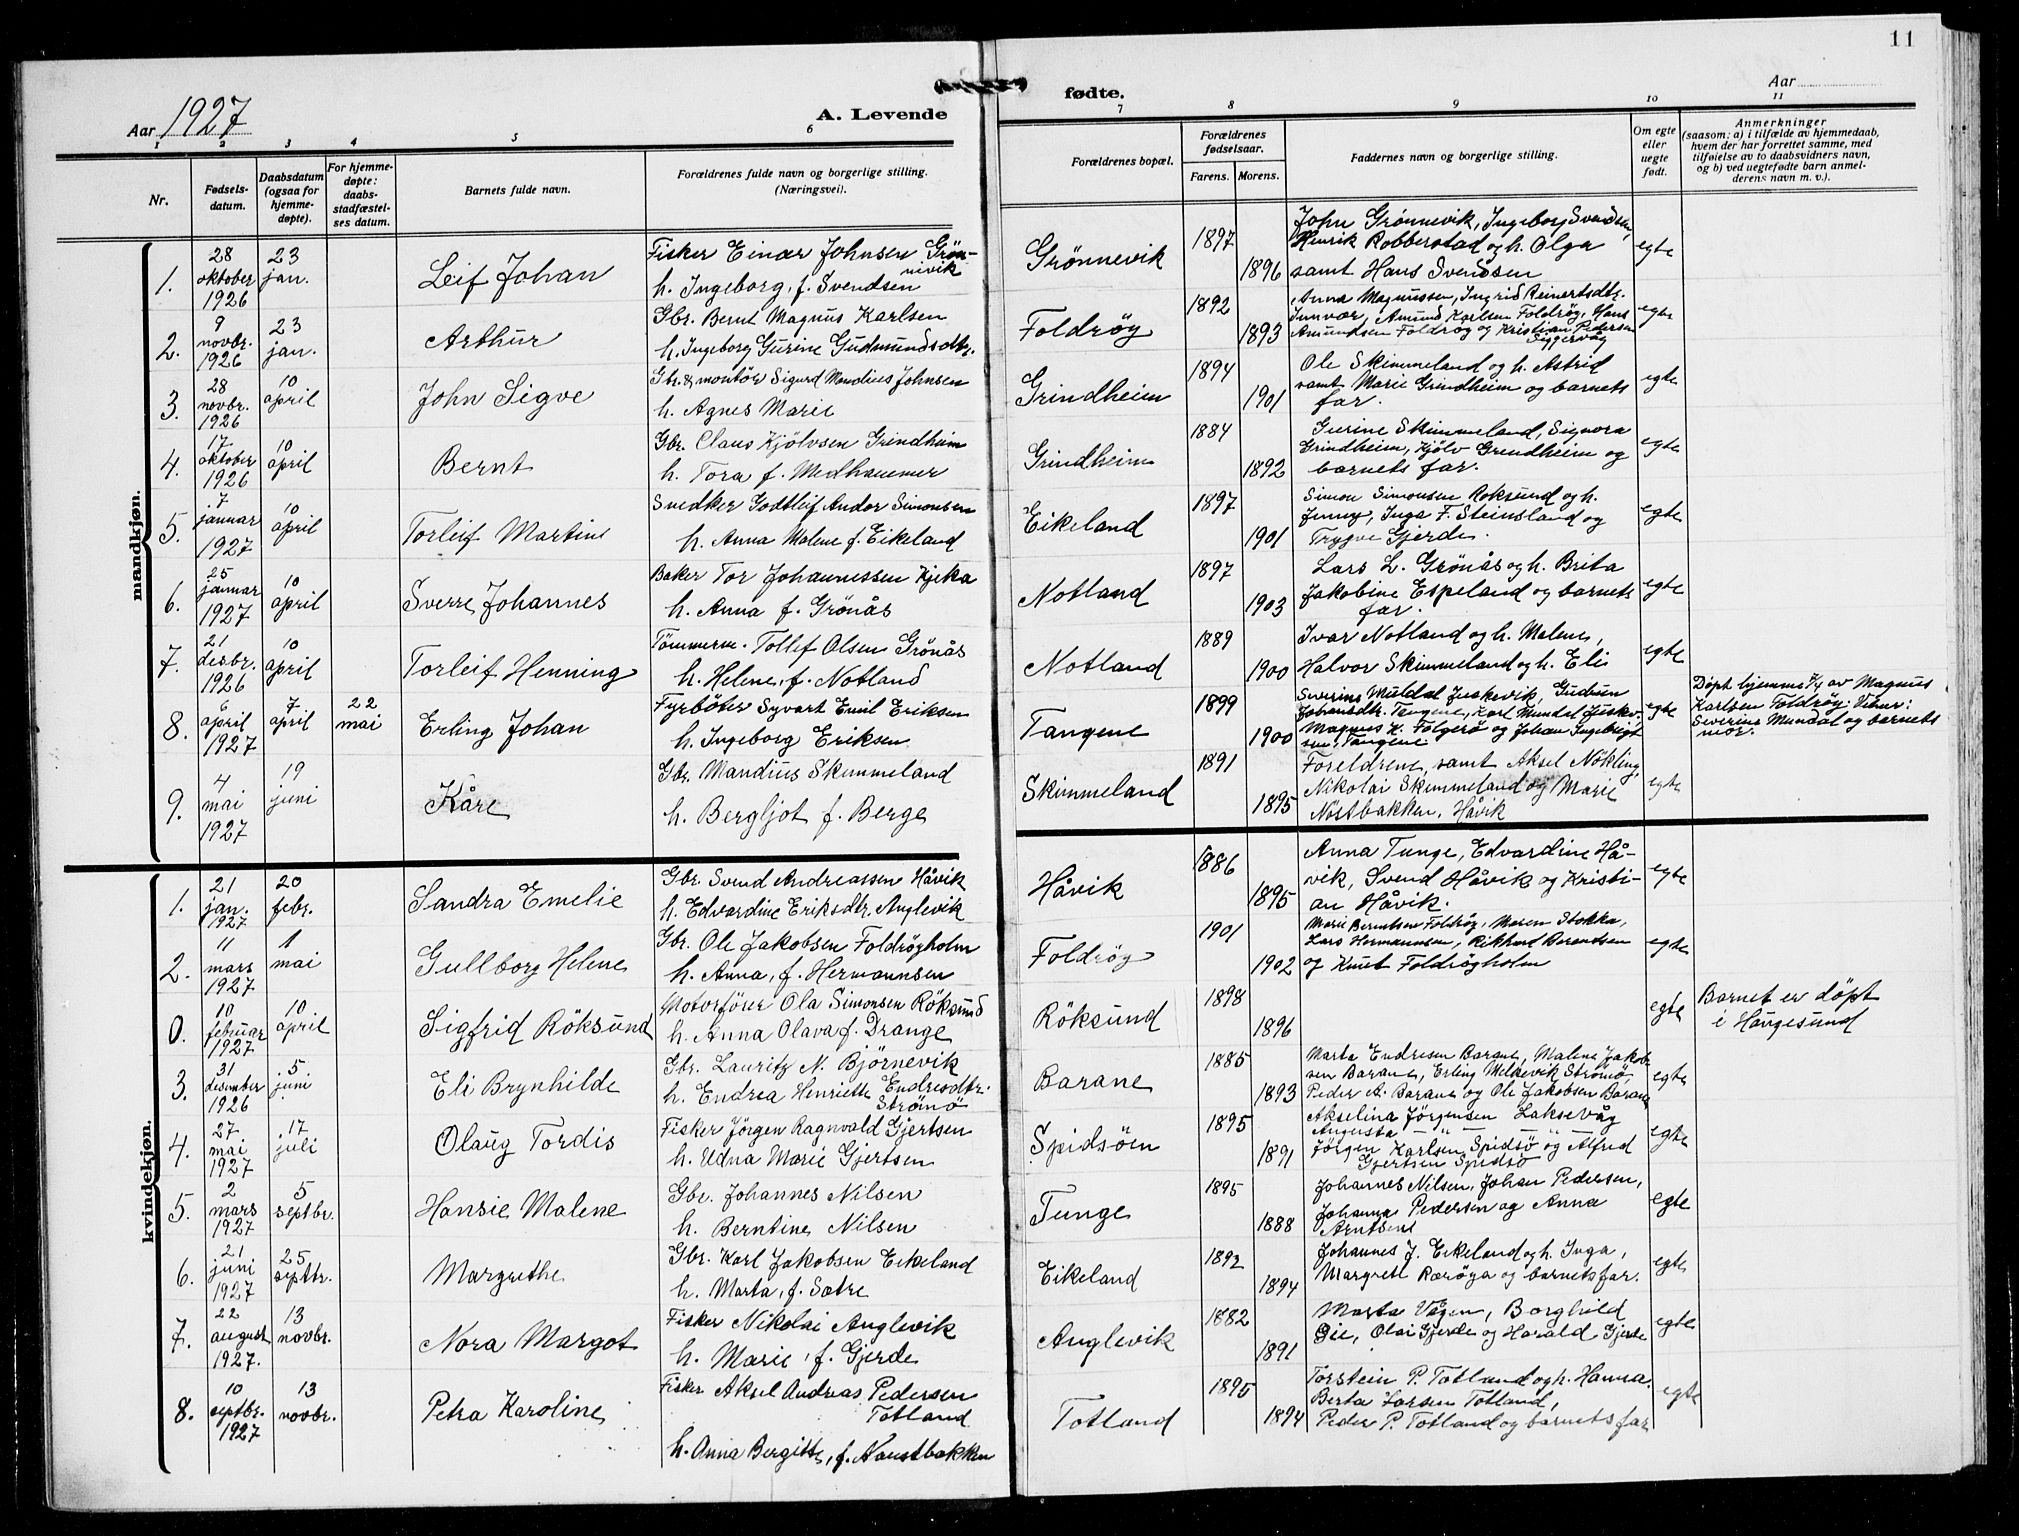 11
Aar 1927
A. Levende
fødte.
Aar
1 2 3 4 5 6
7 8 9 10 11
Nr.
Fødsels-
datum.
Daabsdatum
(ogsaa for
hjemme-
døpte).
For hjemme-
døpte:
daabs-
stadfæstel-
ses datum.
Barnets fulde navn.
Forældrenes fulde navn og borgerlige stilling.
(Næringsvei).
Forældrenes bopæl.
Forældrenes
fødselsaar.
Farens. Morens.
Faddernes navn og borgerlige stilling.
Om egte
eller
uegte
født.
Anmerkninger
(saasom: a) i tilfælde av hjemmedaab,
hvem der har forrettet samme, med
tilføielse av to daabsvidners navn,
og b) ved uegtefødte barn anmel-
derens navn m. v.).
mandkjøn.
1. 28 oktober 1926 23 jan. Leif Johan
Fisker Einar Johnsen Grön-
nevik
h. Ingeborg, f. Svendsen
Grønnevik 1897 1896
John Grønnevik, Ingeborg Svendsen,
Henrik Robberstad og h. Olga
samt Hans Svendsen
egte
2. 9 novbr. 1926 23 jan. Arthur
Gbr. Bernt Magnus Karlsen
h. Ingeborg Gurine Gudmundsdtr.
Foldrøy 1892 1893
Anna Magnussen, Ingrid Reinertsdtr.
Innvær, Amund Karlsen Foldrøy, Hans
Amundsen Foldrøy og Kristian Pedersen
Syggervåg
egte
3. 28 novbr. 1926 10 april John Sigve
Gbr. & montör Sigurd Mandius Johnsen
h. Agnes Marie
Grindheim 1894 1901
Ole Skimmeland og h. Astrid
samt Marie Grindheim og barnets
far.
egte
4. 17 oktober 1926 10 april Bernt
Gbr. Claus Kjölvsen Grindheim
h. Tora f. Medhammer
Grindheim 1884 1892
Gurine Skimmeland, Signora
Grindheim, Kjölv Grindheim og
barnets far.
egte
5. 7 januar 1927 10 april Torleif Martin
Snedker Godtleif Andor Simonsen
h. Anna Malene f. Eikeland
Eikeland 1897 1901
Simon Simonsen Röksund og h.
Jenny, Inga F. Steinsland og
Trygve Gjerde.
egte
6. 25 januar 1927 10 april Sverre Johannes
Baker Tor Johannessen Kjeka
h. Anna f. Grönås
Notland 1897 1903
Lars L. Grönås og h. Brita
Jakobine Espeland og barnets
far.
egte
7. 21 desbr. 1926 10 april Torleif Henning
Tömmerm. Tollef Olsen Grönås
h. Helene, f. Notland
Notland 1889 1900
Ivar Notland og h. Malene,
Halvor Skimmeland og h. Eli
egte
8. 6 april 1927 7 april 22 mai Erling Johan
Fyrböter Syvart Emil Eriksen
h. Ingeborg Eriksen
Tangene 1899 1900
Severine Muldal Juskevik, Gudrun
Johansdtr. Tangene, Karl Mundal Juske-
Magnus K. Folgerö og Johan Ingebrigt
sen, Tangene
egte
Døpt hjemme 7/4 av Magnus
Karlsen Foldröy. Vitner:
Severine Mundal og barnets
mor.
9. 4 mai 1927 19 juni Kåre
Gbr. Mandius Skimmeland
h. Bergljot f. Berge
Skimmeland 1891 1895
Foreldrene, samt Aksel Nökling,
Nikolai Skimmeland og Marie
Nöstbakken, Håvik
egte
kvindekjøn.
1. 21 jan. 1927 20 febr. Sandra Emelie
Gbr. Svend Andreassen Håvik
h. Edvardine Eriksdtr. Anglevik
Håvik 1886 1895
Anna Tunge, Edvardine Hå-
vik, Svend Håvik og Kristi-
an Håvik.
egte
2. 11 mars 1927 1 mai Gullborg Helene
Gbr. Ole Jakobsen Foldröyholm
h. Anna, f. Hermannsen
Foldröy 1901 1902
Marie Berntsen Foldröy, Maren Stokka,
Lars Hermannsen, Rikhard Berendsen
og Knut Foldröyholm
egte
0. 10 februar 1927 10 april Sigfrid Röksund
Motorförer Ola Simonsen Röksund
h. Anna Olava f. Drange
Röksund 1898 1896
egte
Barnet er döpt
i Haugesund
3. 31 desember 1926 5 juni Eli Brynhilde
Gbr. Lauritz N. Björnevik
h. Endrea Henriette Endresdtr.
Strömö
Barane 1885 1893
Marta Endresen Barane, Malene Jakob-
sen Barane, Erling Melkevik Strömö,
Peder A. Barane og Ole Jakobsen Barane
egte
4. 27 mai 1927 17 juli Olaug Tordis
Fisker Jörgen Ragnvald Gjertsen
h. Udna Marie Gjertsen
Spidsöen 1895 1891
Akselina Jörgensen Laksevåg
Augusta — " — — " —
Jörgen Karlsen Spidsö og Alfred
Gjertsen Spidsö
egte
5. 2 mars 1927 5 septbr. Hansie Malene
Gbr. Johannes Nilsen
h. Berntine Nilsen
Tunge 1895 1888
Johannes Nilsen, Johan Pedersen,
Johanna Pedersen og Anna
Arntsen
egte
6. 21 juni 1927 25 septbr. Margrethe
Gbr. Karl Jakobsen Eikeland
h. Marta, f. Sætre
Eikeland 1892 1894
Johannes J. Eikeland og h. Inga,
Margrete Ræröya og barnets far.
egte
7. 22 august 1927. 13 novbr. Nora Margot
Fisker Nikolai Anglevik
h. Marie, f. Gjerde
Anglevik 1882 1891
Marta Vågen, Borghild
Öie, Olai Gjerde og Harald Gjerde
egte
8. 10 septbr. 1927 13 novbr. Petra Karoline
Fisker Aksel Andreas Pedersen
Totland
h. Anna Bergitte, f. Naustbakken
Totland 1895 1894
Torstein P. Totland og h. Hanna.
Berta Larsen Totland,
Peder P. Totland og barnets far
egte